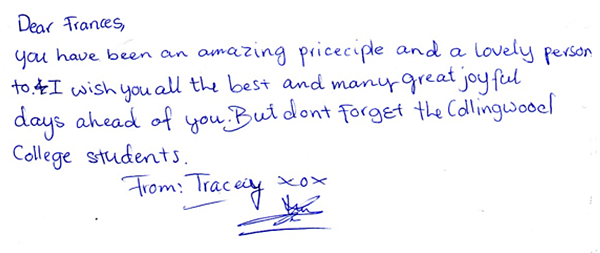 Dear Frances,
you have been an amazing priceciple and a lovely person
to. & I wish you all the best and many great joyful
days ahead of you. But dont Forget the Collingwood
College students.
From: Tracey xox